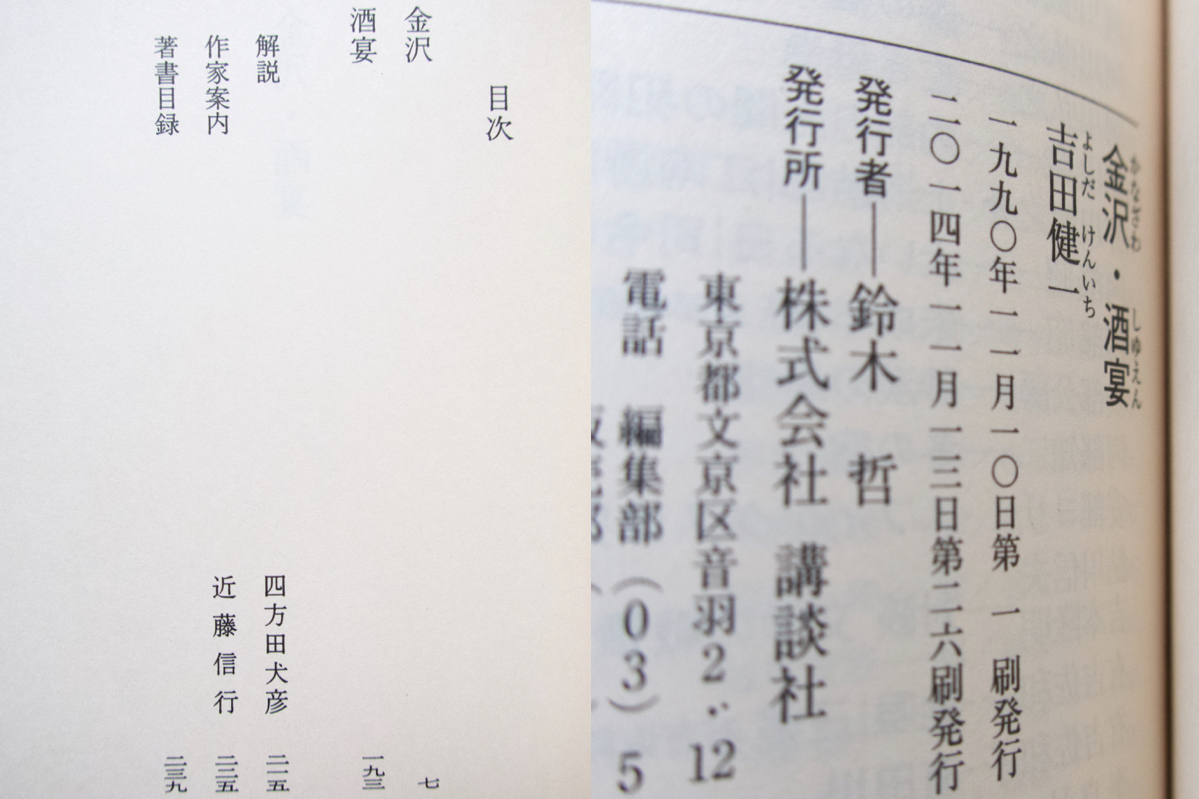 目次
金沢 七
酒宴 一九三
解説 四方田犬彦 二一五
作家案内 近藤信行 二二五
著書目録 二三九
金沢・酒宴
かなざわ しゅえん
吉田健一
よしだ けんいち
一九九〇年一一月一〇日第一刷発行
二〇一四年一一月一三日第二六刷発行
発行者――鈴木 哲
発行所――株式会社 講談社
東京都文京区音羽2・12
電話 編集部 (03) 5